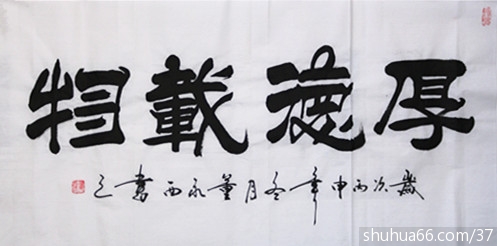 厚德載物
歲次丙申年冬月董永西書之
shuhua66.com/37